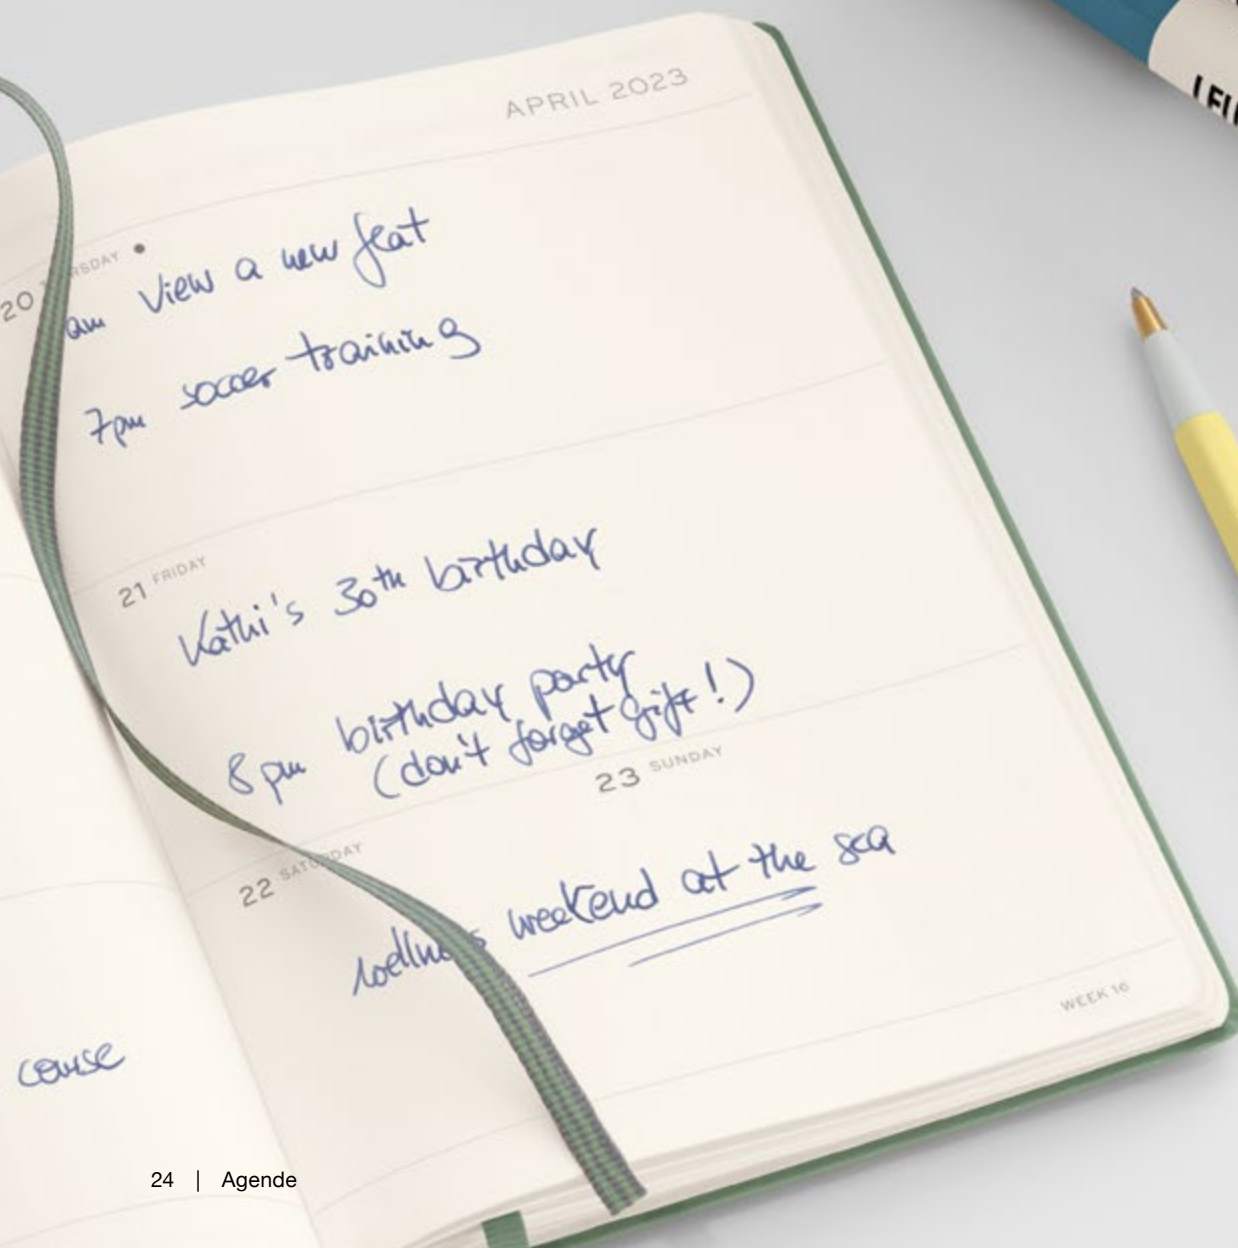 APRIL 2023
20
am view a new flat
7pm soccer training
21 FRIDAY
Kathi's 30th birthday
8pm birthday party
(don't forget gift!)
22 SATURDAY
23 SUNDAY
wellness weekend at the sea
WEEK 16
course
24 | Agende